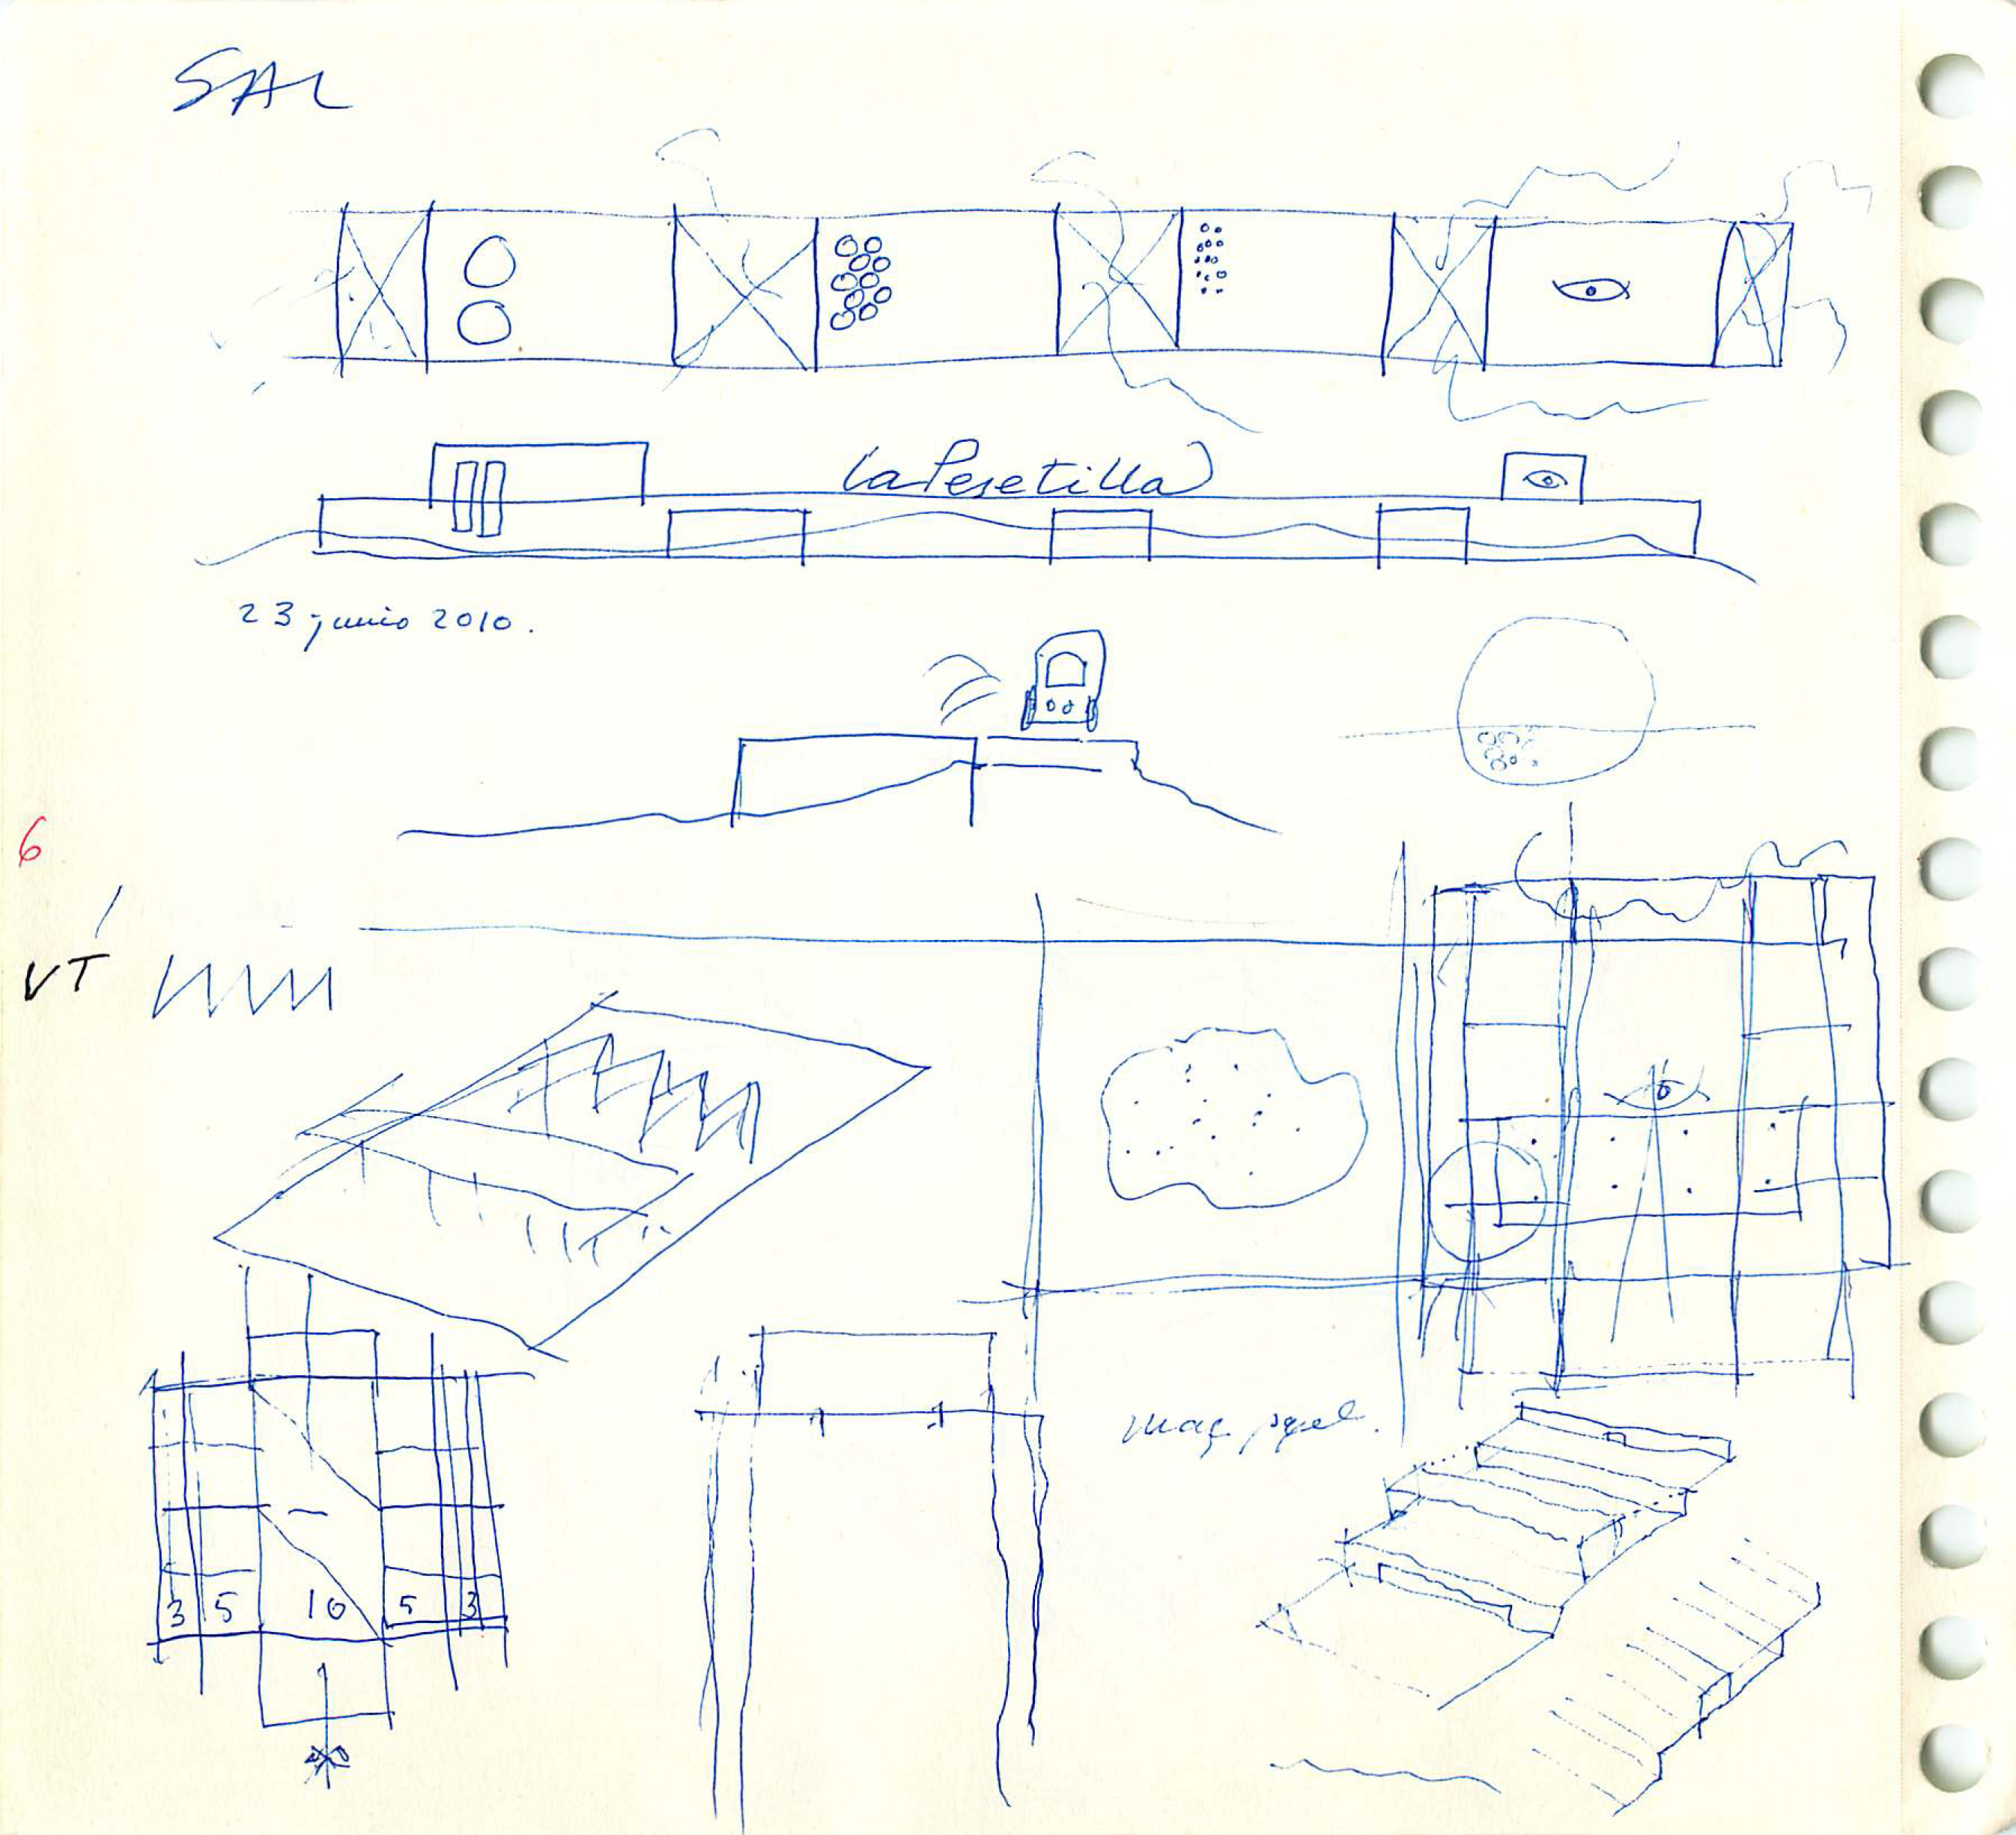 SAL
La Pesetilla
23 junio 2010.
6
VT
3 5 10 5 3